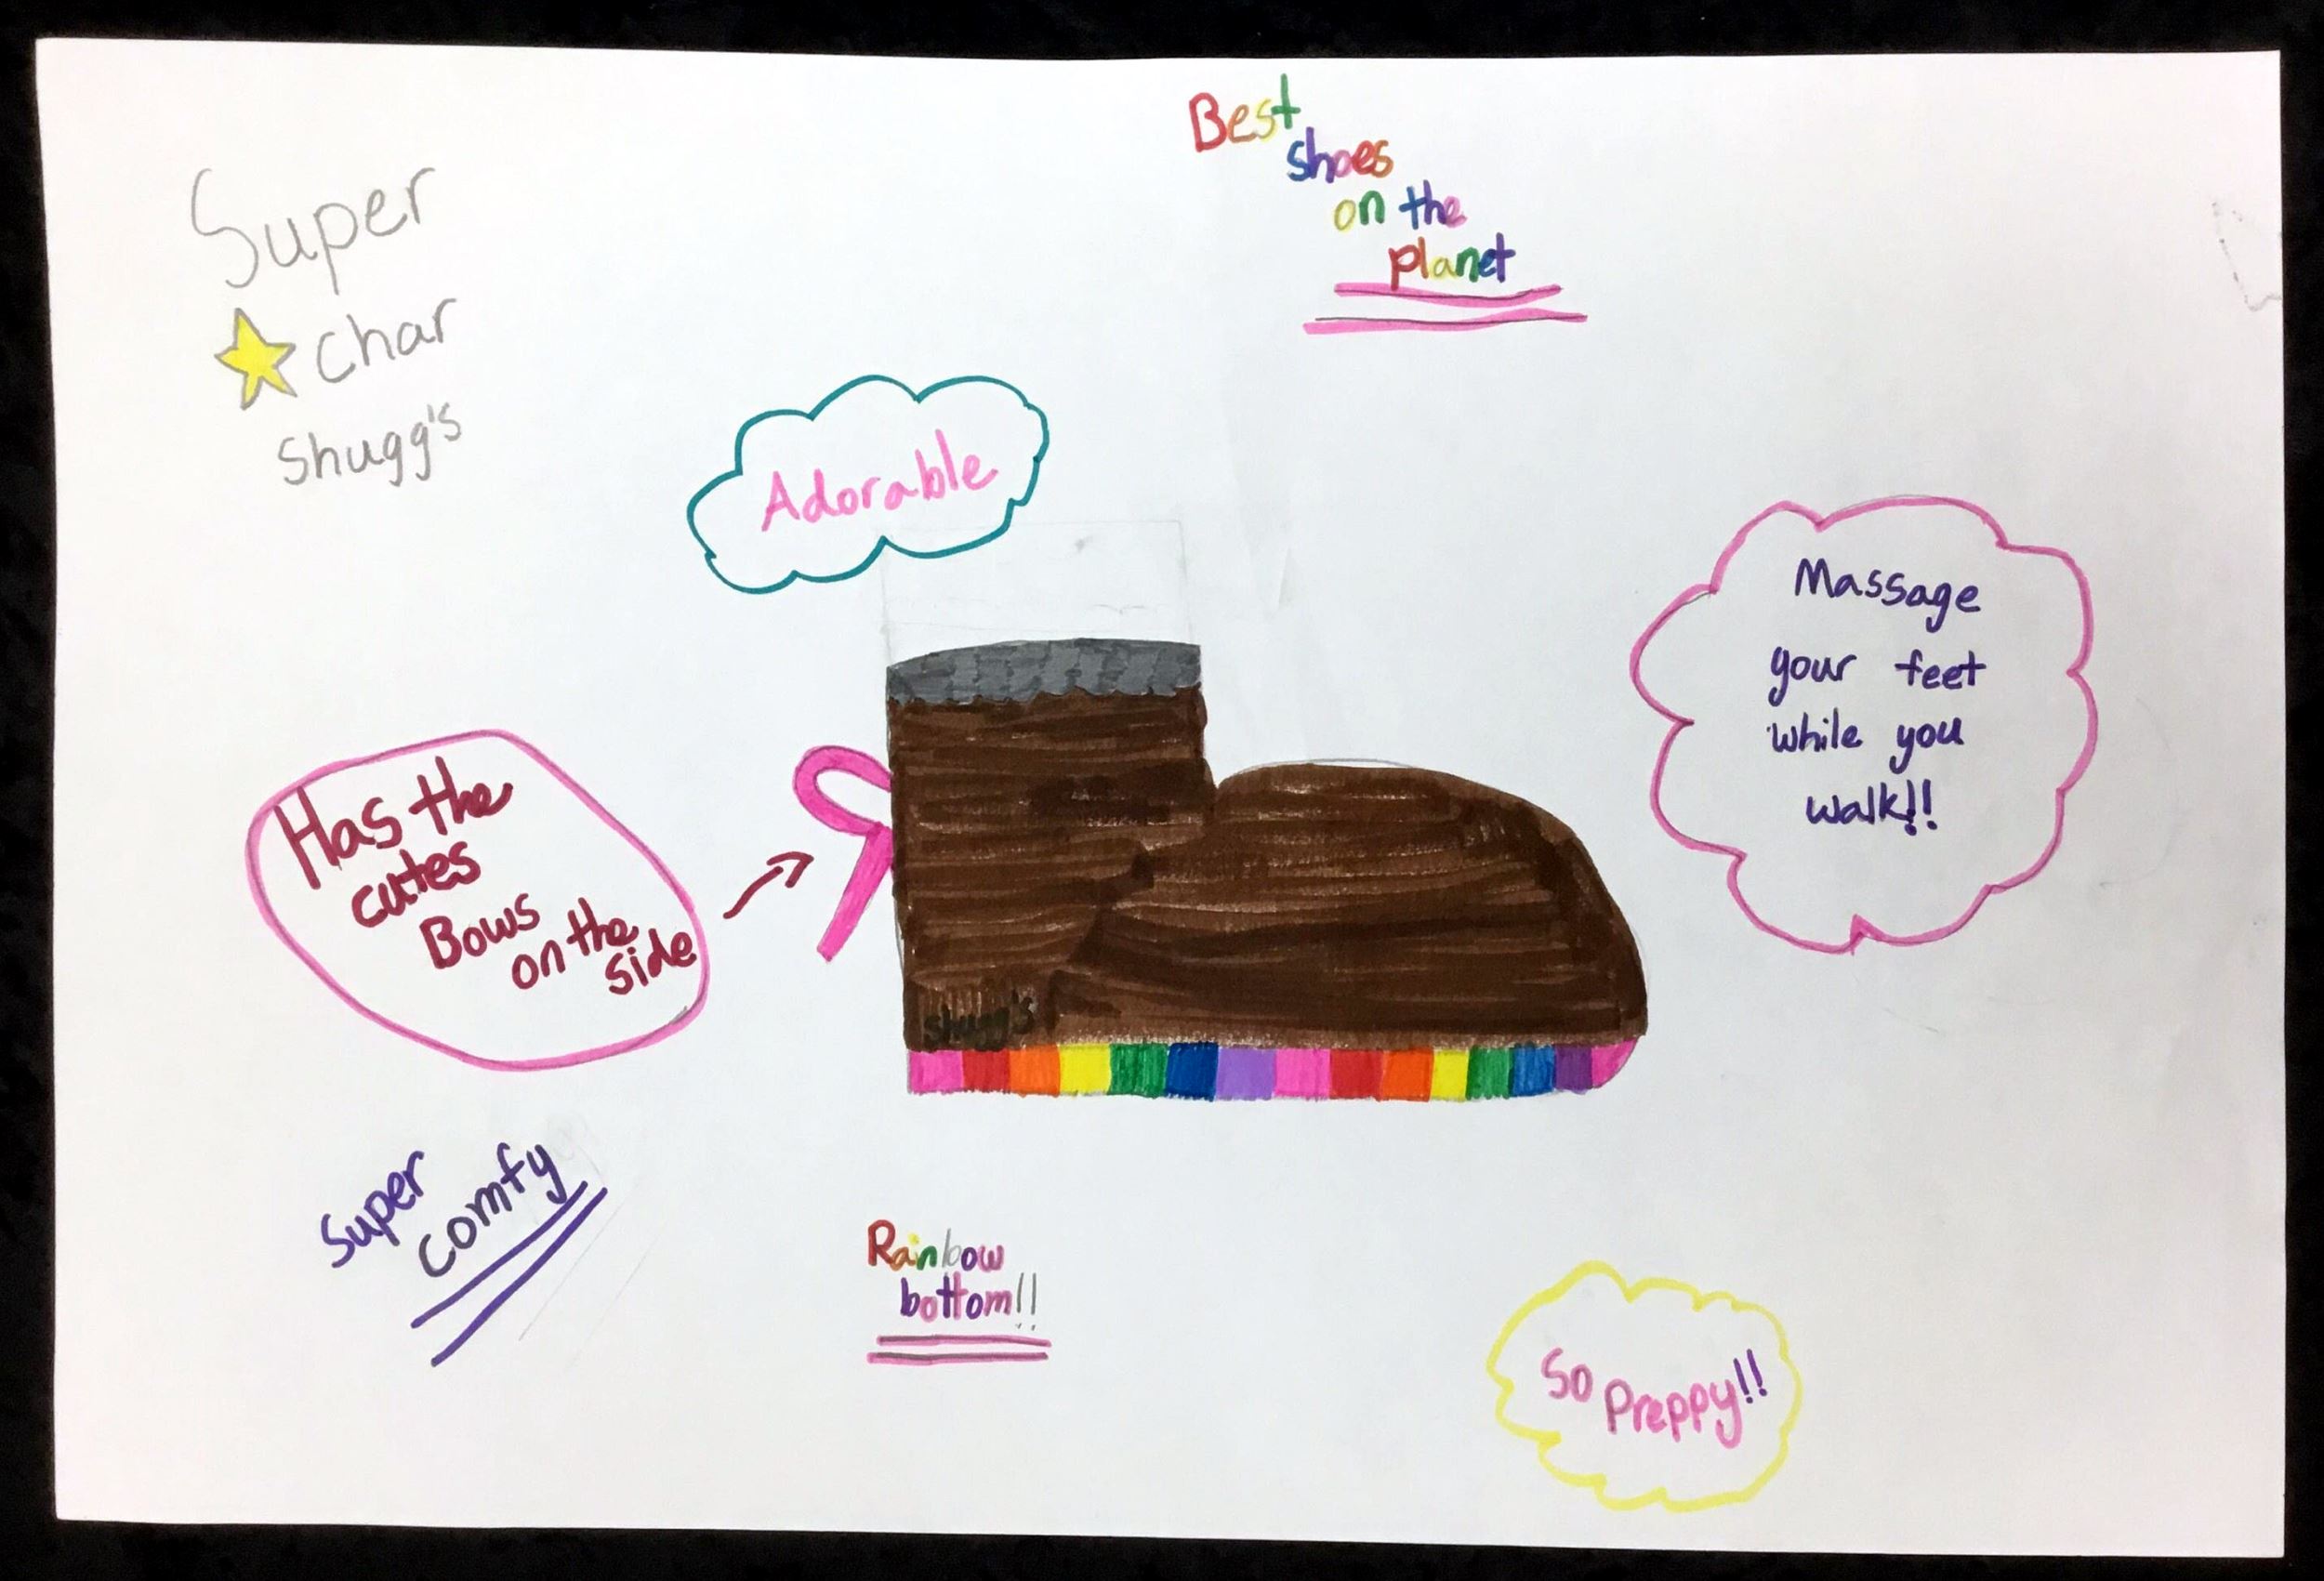 Super
Char
Shugg's
Best
shoes
on the
planet
Adorable
Massage
your feet
while you
walk!!
Has the
cutes
Bows
on the
side
shugg's
Super
comfy
Rainbow
bottom!!
So Preppy!!